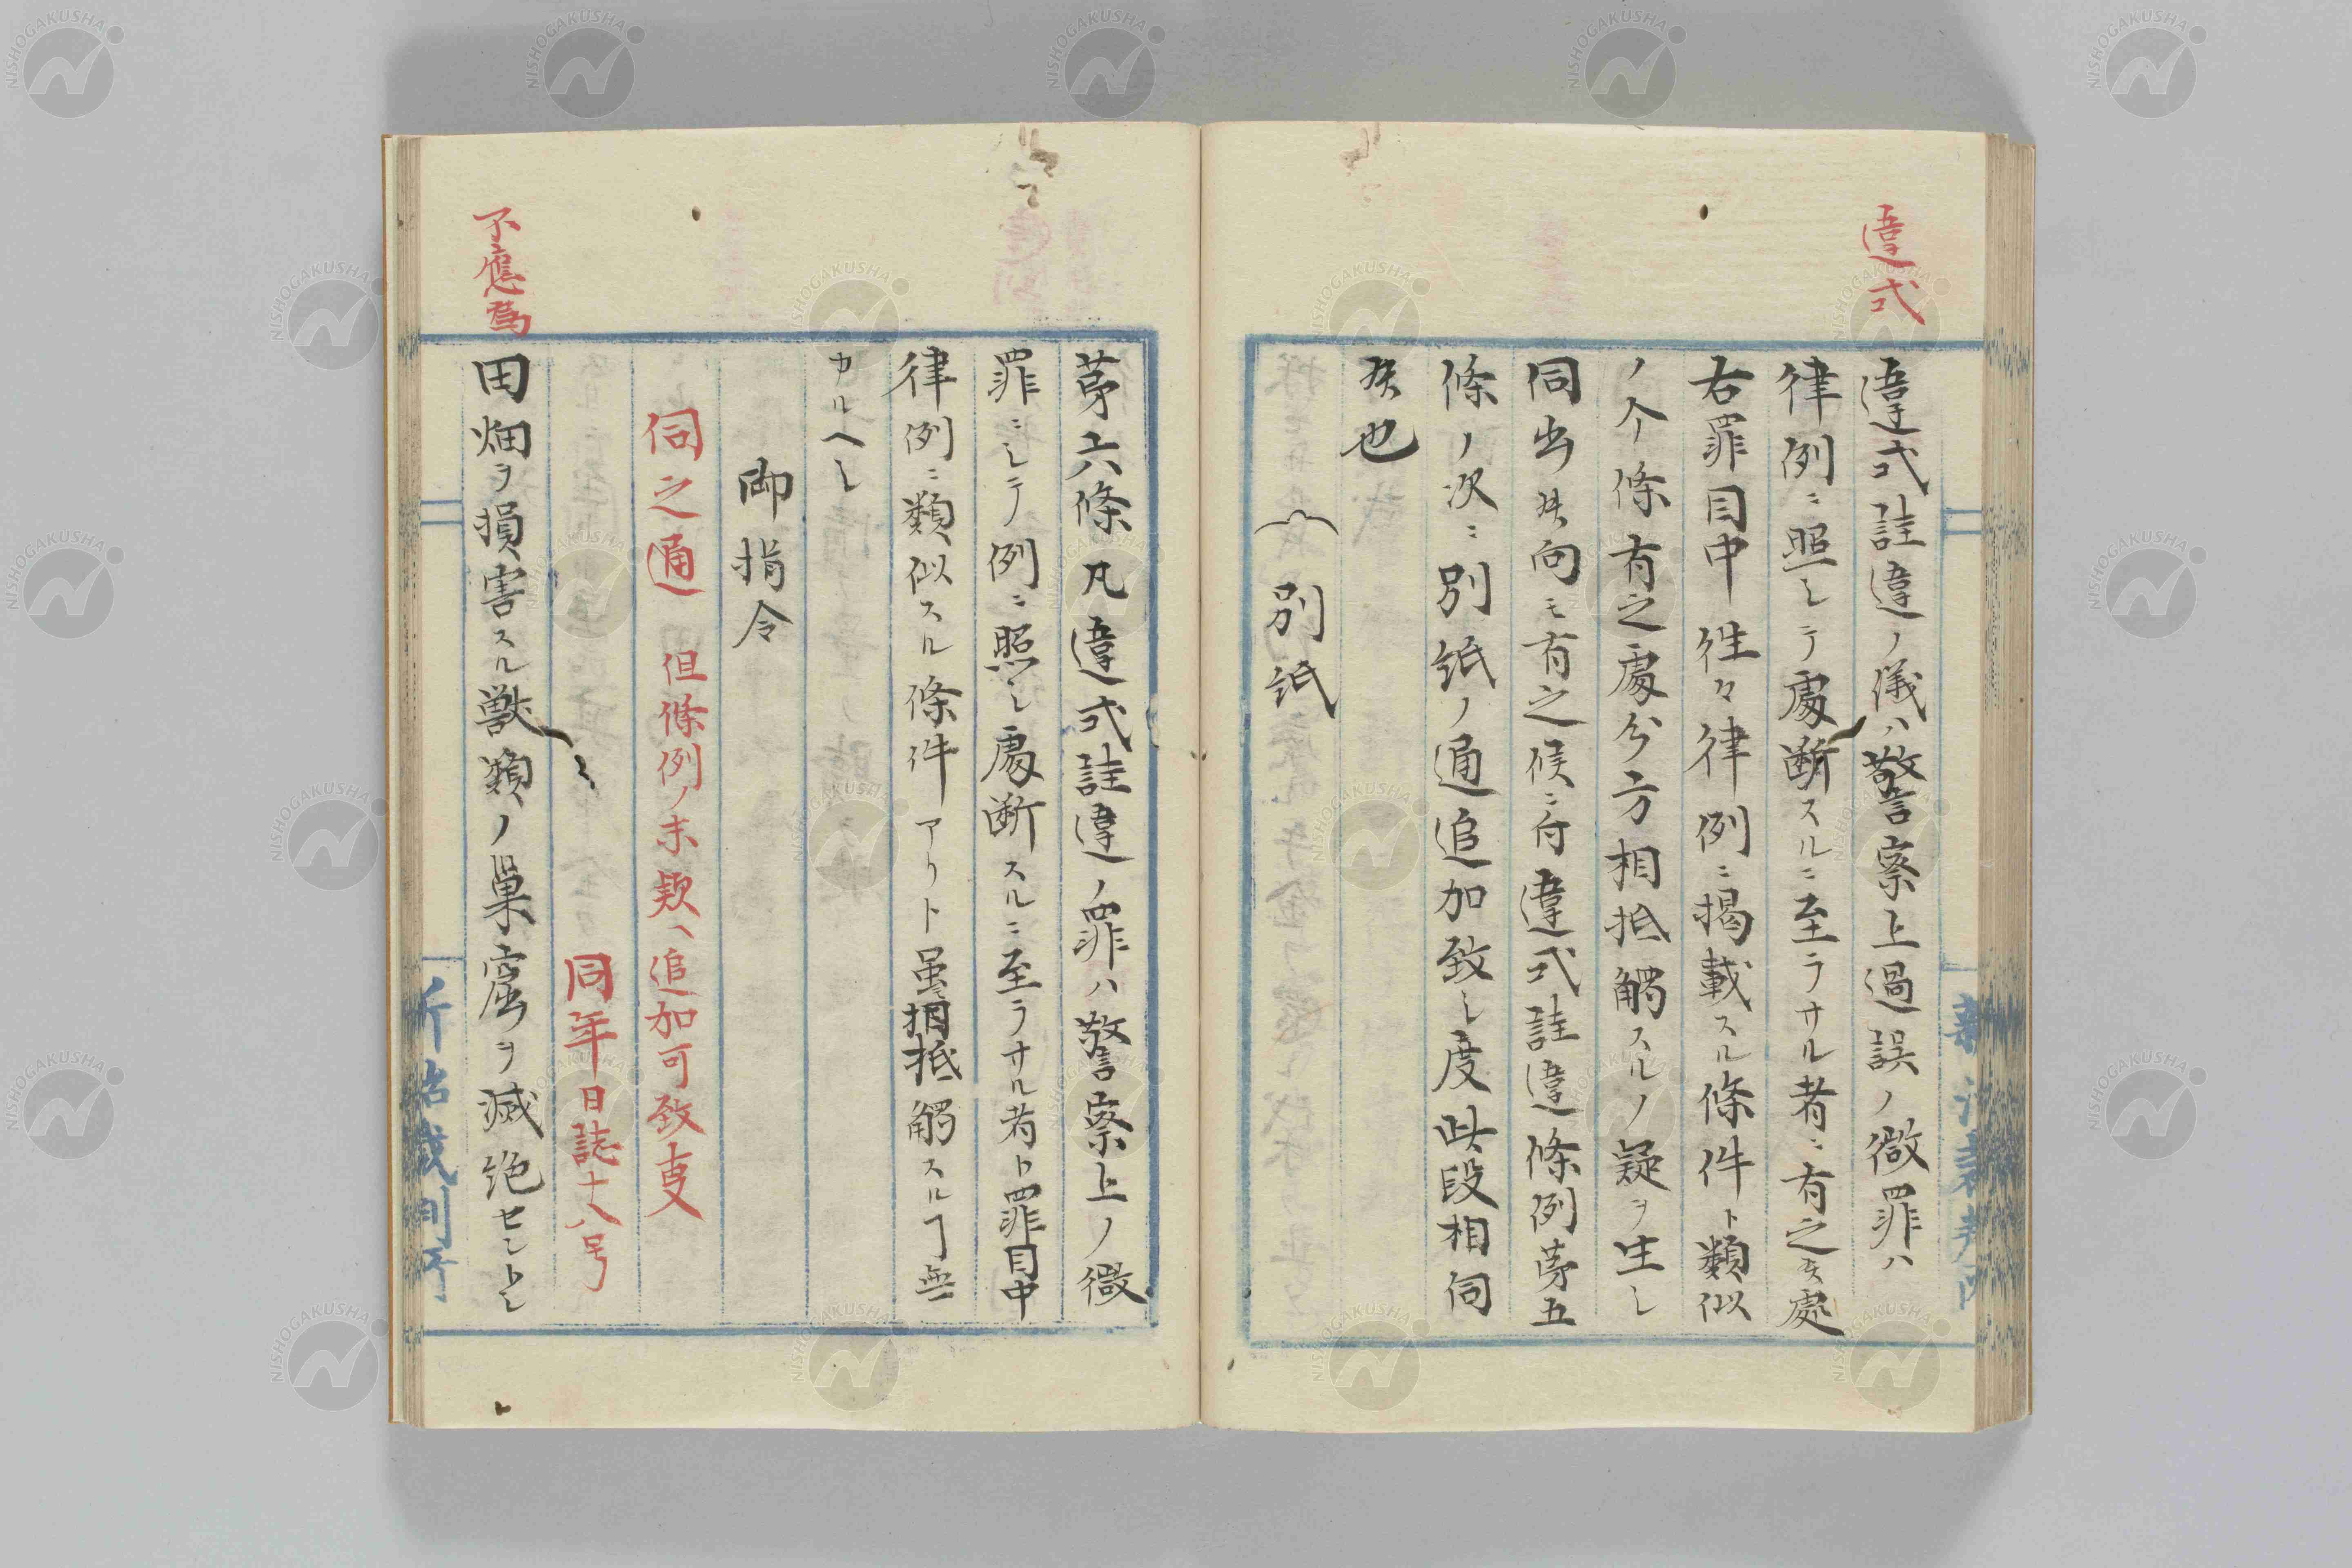 違式
違式詿違ノ儀ハ警察上過誤ノ微罪ハ
律例ニ照シテ處断スルニ至ラサル者ニ有之候處
右罪目中徃々律例ニ掲載スル條件ト類似
ノ个條有之處分方相抵觸スルノ疑ヲ生シ
伺出候向モ有之候ニ付違式詿違條例第五
條ノ次ニ別紙ノ通追加致シ度此段相伺
候也
別紙
第六條凡違式詿違ノ罪ハ警察上ノ微
罪ニシテ例ニ照シ處断スルニ至ラサル者ト罪目中
律例ニ類似スル條件アリト虽𪜈相抵觸スルヿ無
カルヘシ
御指令
伺之通 但條例ノ末欵ヘ追加可致事
同年日誌十八号
不應為
田畑ヲ損害スル獣類ノ巣窟ヲ滅絶セントシ
新治裁判所